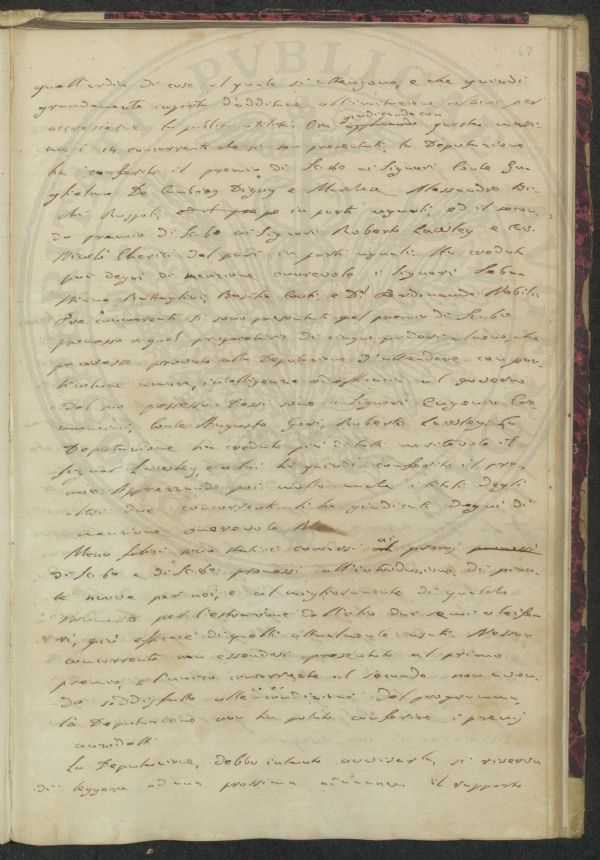 47
quell'ordin di cose al quale si attengono, e che quindi
grandemente importa d'additare all'imitazione altrui per
accrescerne la pubblica utilità. Ora giudicando con questa massi
ma i 14 concorrenti che si son presentati, la Deputazione
ha conferito il premio di Sc. ai Signori Conte Gu
glielmo De Cambray Digny e Marchese Alessandro Bi
chi Ruspoli, in parti uguali, ed il secon
do premio di Sc. ai Signori Roberto Lawley e
Niccolò Cherici del pari in parti uguali. Ha creduto
poi degni di menzione onorevole i Signori Sebas
tiano Battaglini, Conti, e D. Ferdinando Nobili.
Tre concorrenti si sono presentati pel premio di Sc.
promesso a quel proprietario di cinque poderi almeno, che
provasse alla Deputazione d'attendere con par
ticolare amore, intelligenza ed efficacia al governo
del suo possesso. Dessi sono i Signori Eugenio
Conte Augusto Gori, Roberto Lawley. La
Deputazione ha creduto più di tutti meritevole il
Signor Lawley, e a lui ha quindi conferito il pre
mio. Apprezzando poi molto anche i titoli degli
altri due concorrenti li ha giudicati degni di
menzione onorevole
Meno felici sono stati i concorsi ai premj promessi
di Sc. e di Sc. promessi all'introduzione di pian
te nuove per noi, e al miglioramento di qualche
strumento per l'estrazione dell'olio dai semi oleife
ri, più efficace di quelli attualmente usati. Nessun
concorrente non essendosi presentato al primo
premio, e l'unico concorrente al secondo non aven
do soddisfatto alle condizioni del programma,
la Deputazione non ha potuto conferire i premj
anzidetti
La Deputazione, debbo intanto avvisarlo, si riserva
di leggere ad una prossima adunanza il rapporto
PVBLICO